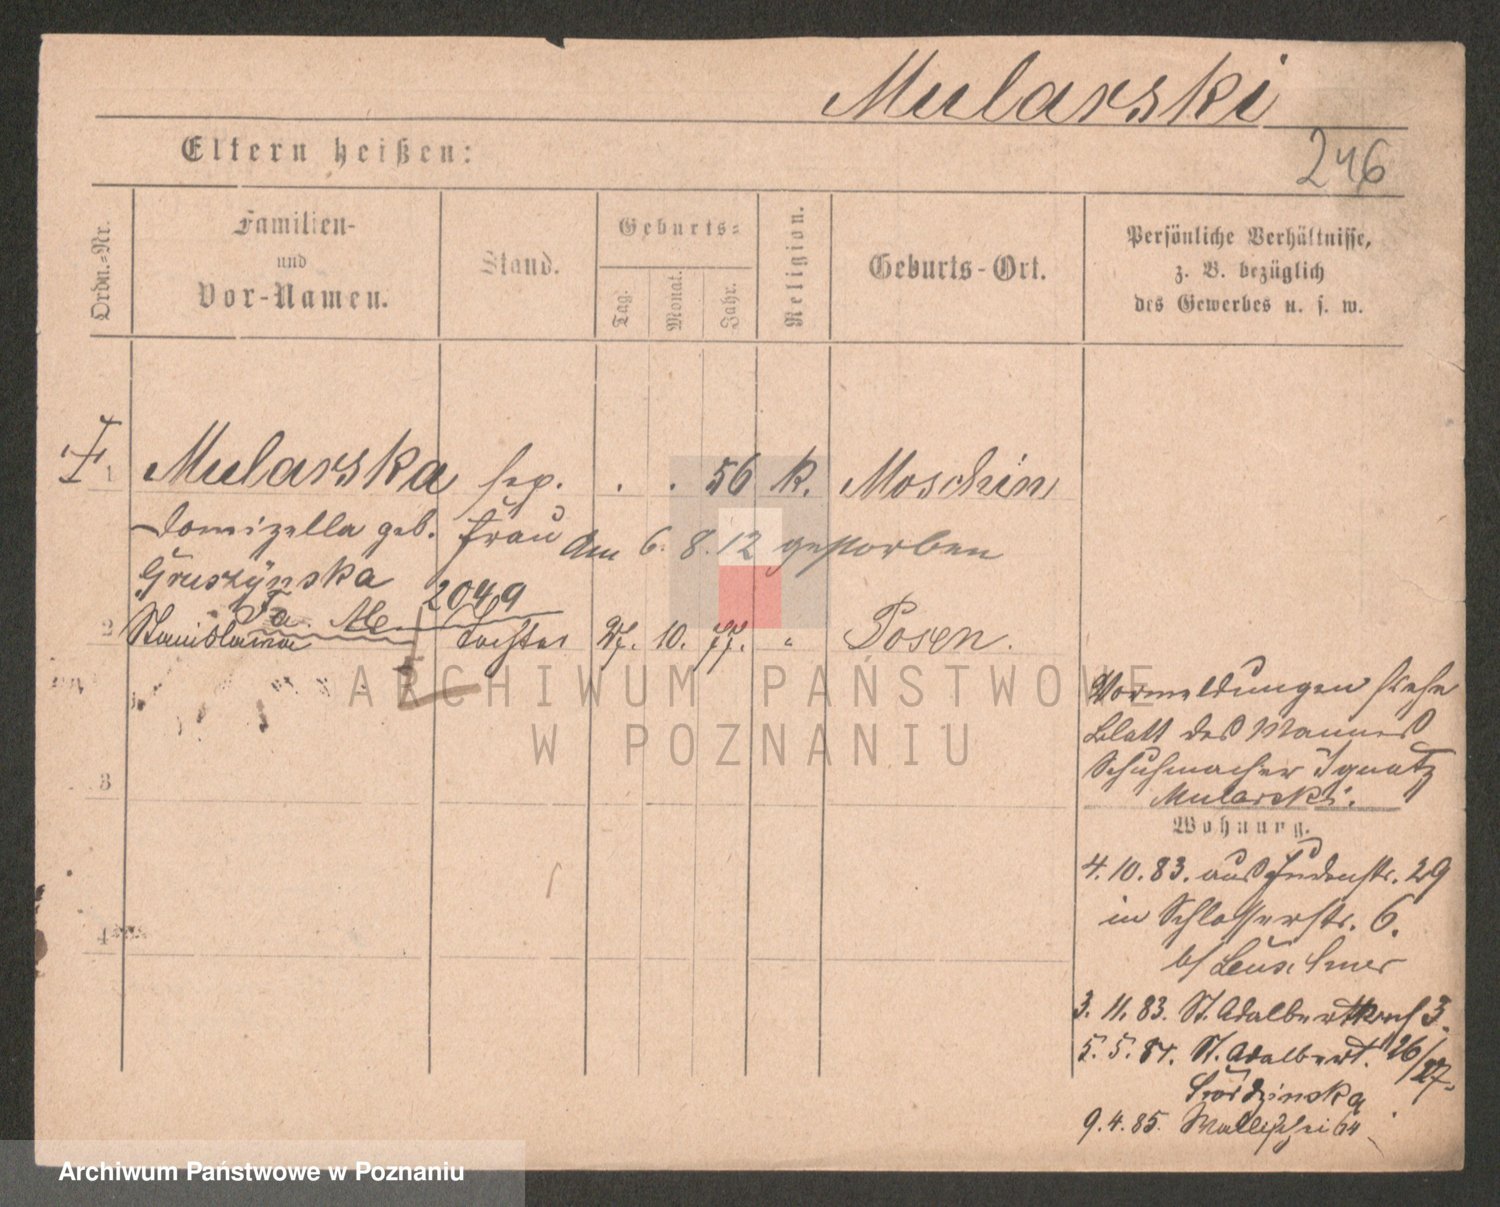 Mularski
246
Eltern heißen:
Ordn.-Nr.
Familien-
und
Vor-Namen.
Stand.
Geburts-
Tag.
Monat.
Jahr.
Religion.
Geburts-Ort.
Persönliche Verhältnisse,
z. B. bezüglich
des Gewerbes u. s. w.
1 Mularska sep. . . 56 k. Moschin
Domizella geb. Frau
Am 6. 8. 12 gestorben
Gruszynska
2049
2 Stanislawa Tochter 27. 10. 77. " Posen.
Vormeldungen siehe
Blatt des Mannes
Schuhmacher Ignatz
Mularski.
3
Wohnung.
4. 10. 83. aus Judenstr. 29
in Schlosserstr. 6.
b/ Leuschner
4
3. 11. 83. St. Adalbertkirch 3.
5. 5. 84. St. Adalbert. 26/27.
9. 4. 85. Wallischei 64
ARCHIWUM PAŃSTWOWE
W POZNANIU
Archiwum Państwowe w Poznaniu